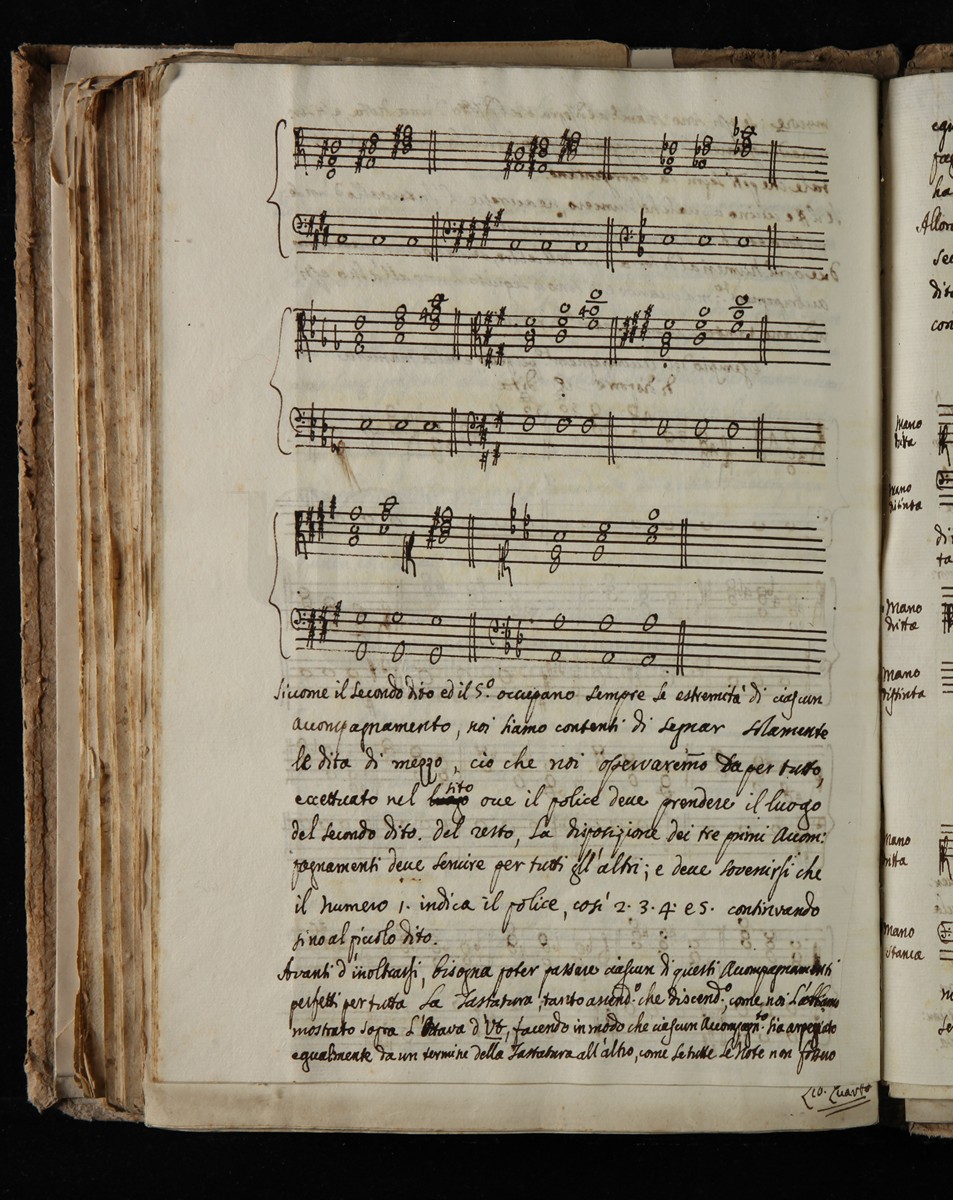 Siccome il Secondo dito ed il 5.º occupano sempre le estremità di ciascun
Accompagnamento, noi siamo contenti di segnar solamente
le dita di mezzo, ciò che noi osservaremo da per tutto,
eccettuato nel sito ove il police deve prendere il luogo
del secondo dito. Del resto, la disposizione dei tre primi Accom:
pagnamenti deve servire per tutti gl'altri; e deve sovenirsi che
il numero 1. indica il police, così 2. 3. 4. e 5. continuando
sino al piccolo dito.
Avanti d'inoltrarsi, bisogna poter passare ciascun di questi Accompagnamenti
perfetti per tutta la Tastatura, tanto ascend.º che discend.º, come noi l'abbiamo
mostrato sopra l'Ottava d'Ut, facendo in modo che ciascun Accompagn.to sia arpegiato
egualmente da un termine della Tastatura all'altro, come se tutte le Note non fossero
Lio. Quarto
Mano
dritta
Mano
Mano
dritta
Mano
Mano
Mano